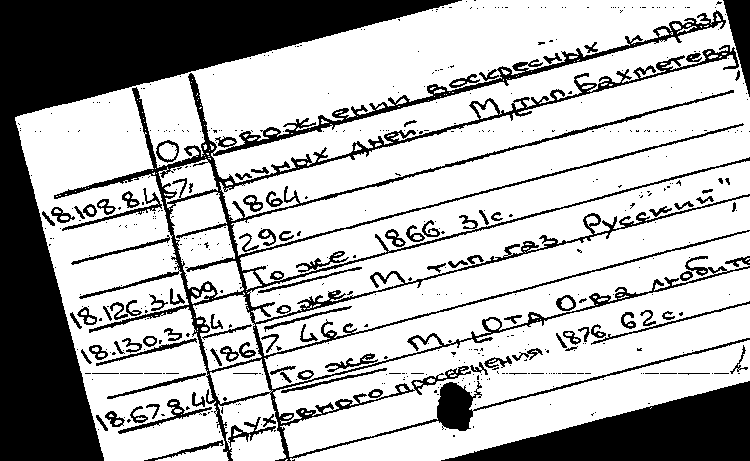 О провождении воскресных и празд
18.108.8.457. ничных дней. М., [тип. Бахметева],
1864.
29с.
То же. 1866. 31с.
18.126.3.409. То же. М., тип. газ. „Русский",
18.130.3.84. 1867. 46с.
То же. М., [Отд О-ва любите
18.67.8.44. духовного просвещения. 1876. 62с.